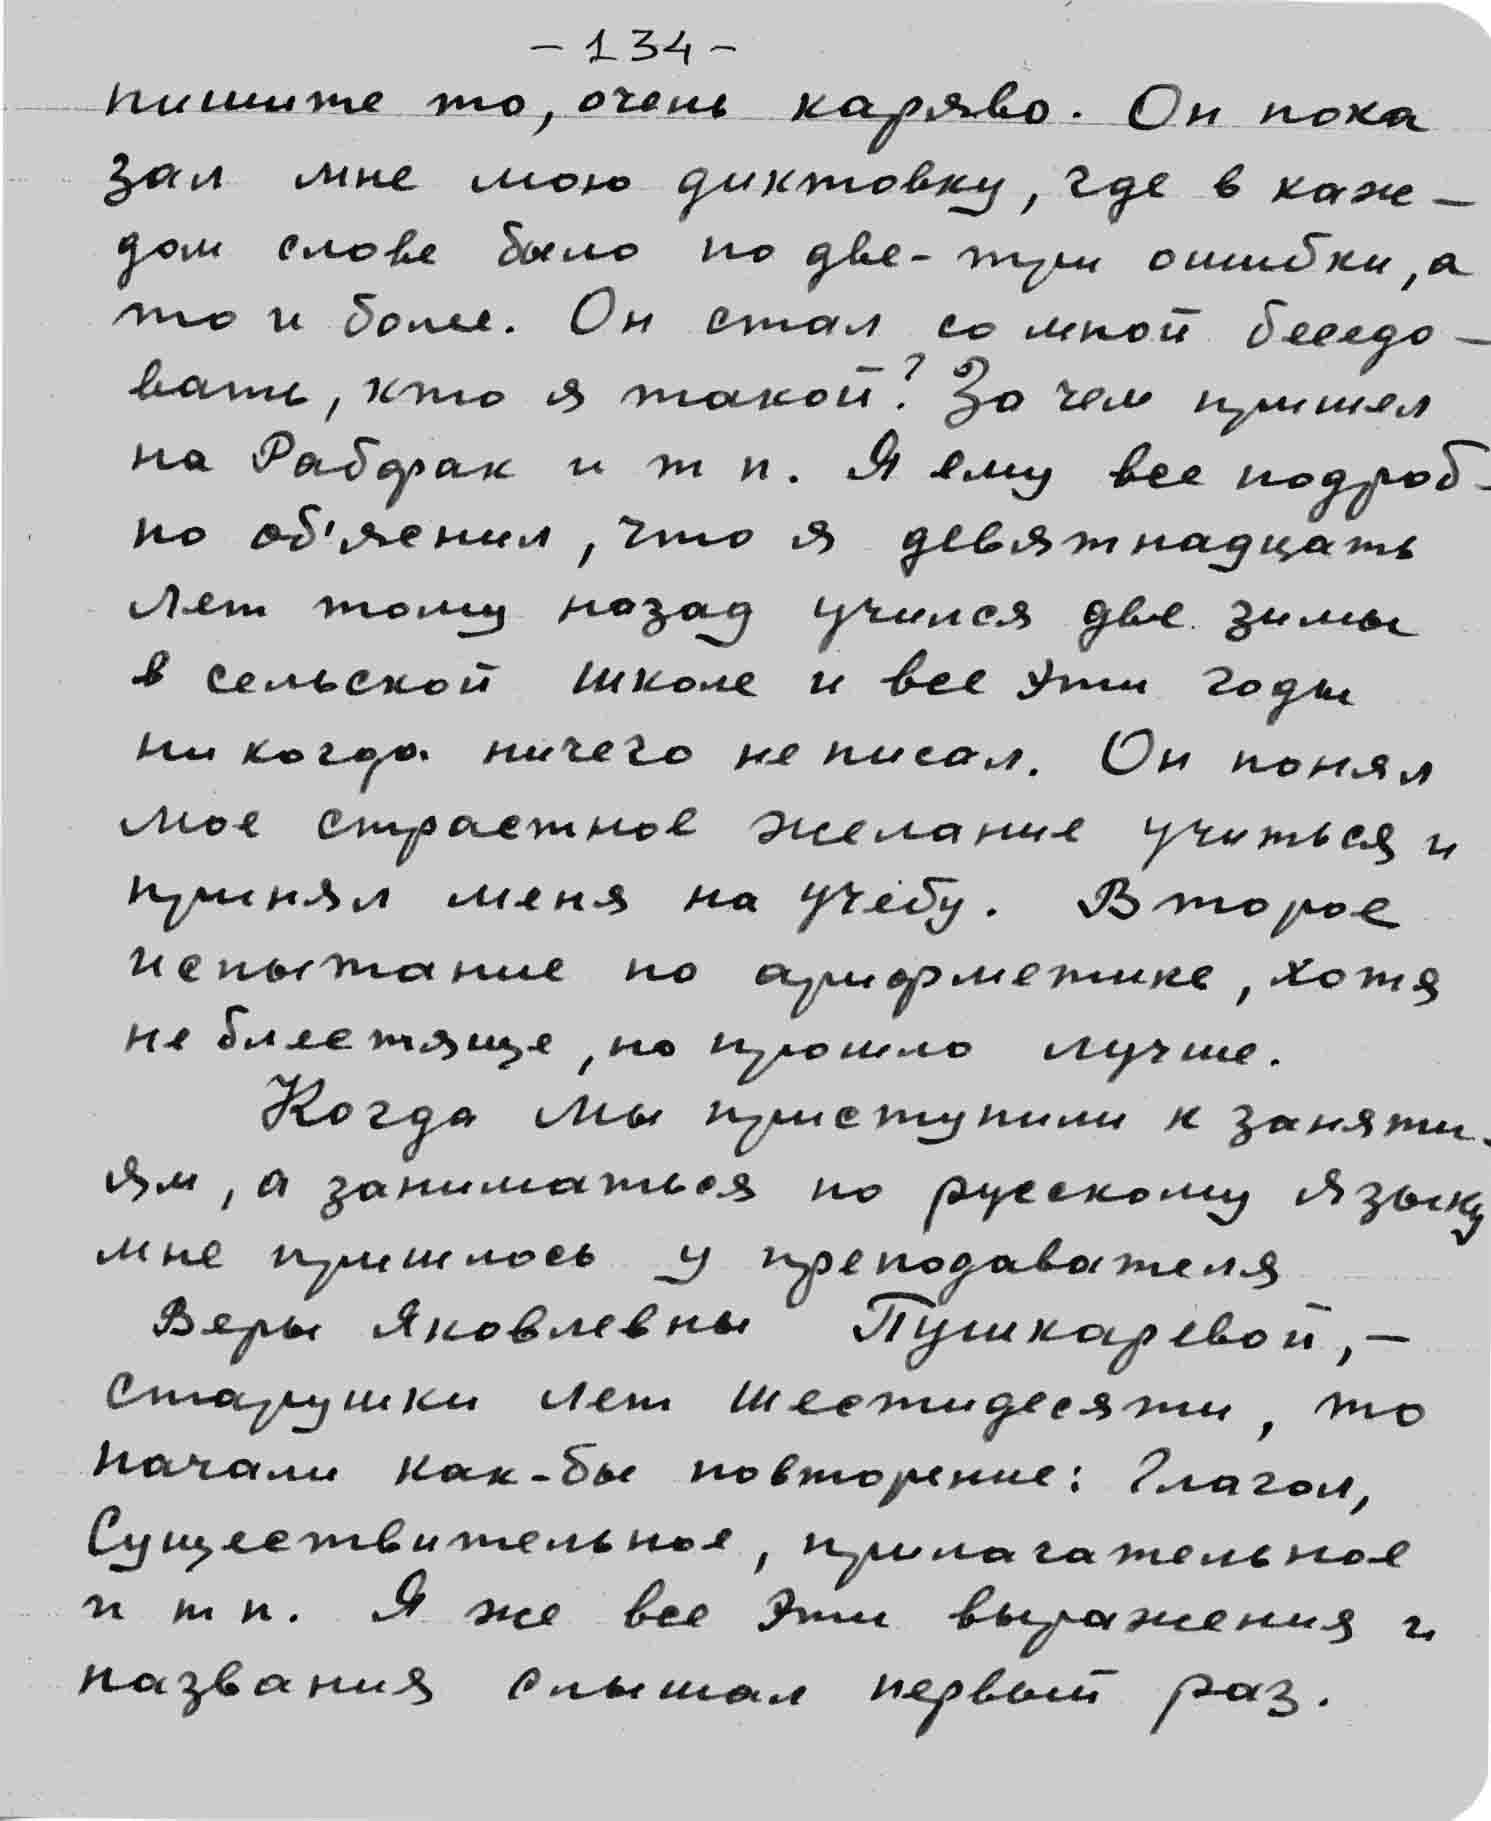 - 134 -
пишите то, очень каряво. Он пока
зал мне мою диктовку, где в каж-
дом слове было по две-три ошибки, а
то и более. Он стал со мной беседо-
вать, кто я такой? За чем пришел
на Рабфак и т п. Я ему все подроб-
но об'яснил, что я девятнадцать
лет тому назад учился две зимы
в сельской школе и все эти годы
ни когда ничего не писал. Он понял
мое страстное желание учиться и
принял меня на учебу. Второе
испытание по арифметике, хотя
не блестяще, но прошло лучше.
Когда мы приступили к заняти-
ям, а заниматься по русскому языку
мне пришлось у преподавателя
Веры Яковлевны Пушкаревой, -
старушки лет шестидесяти, то
начали как-бы повторение: Глагол,
Существительное, прилагательное
и т п. Я же все эти выражения и
названия слышал первый раз.